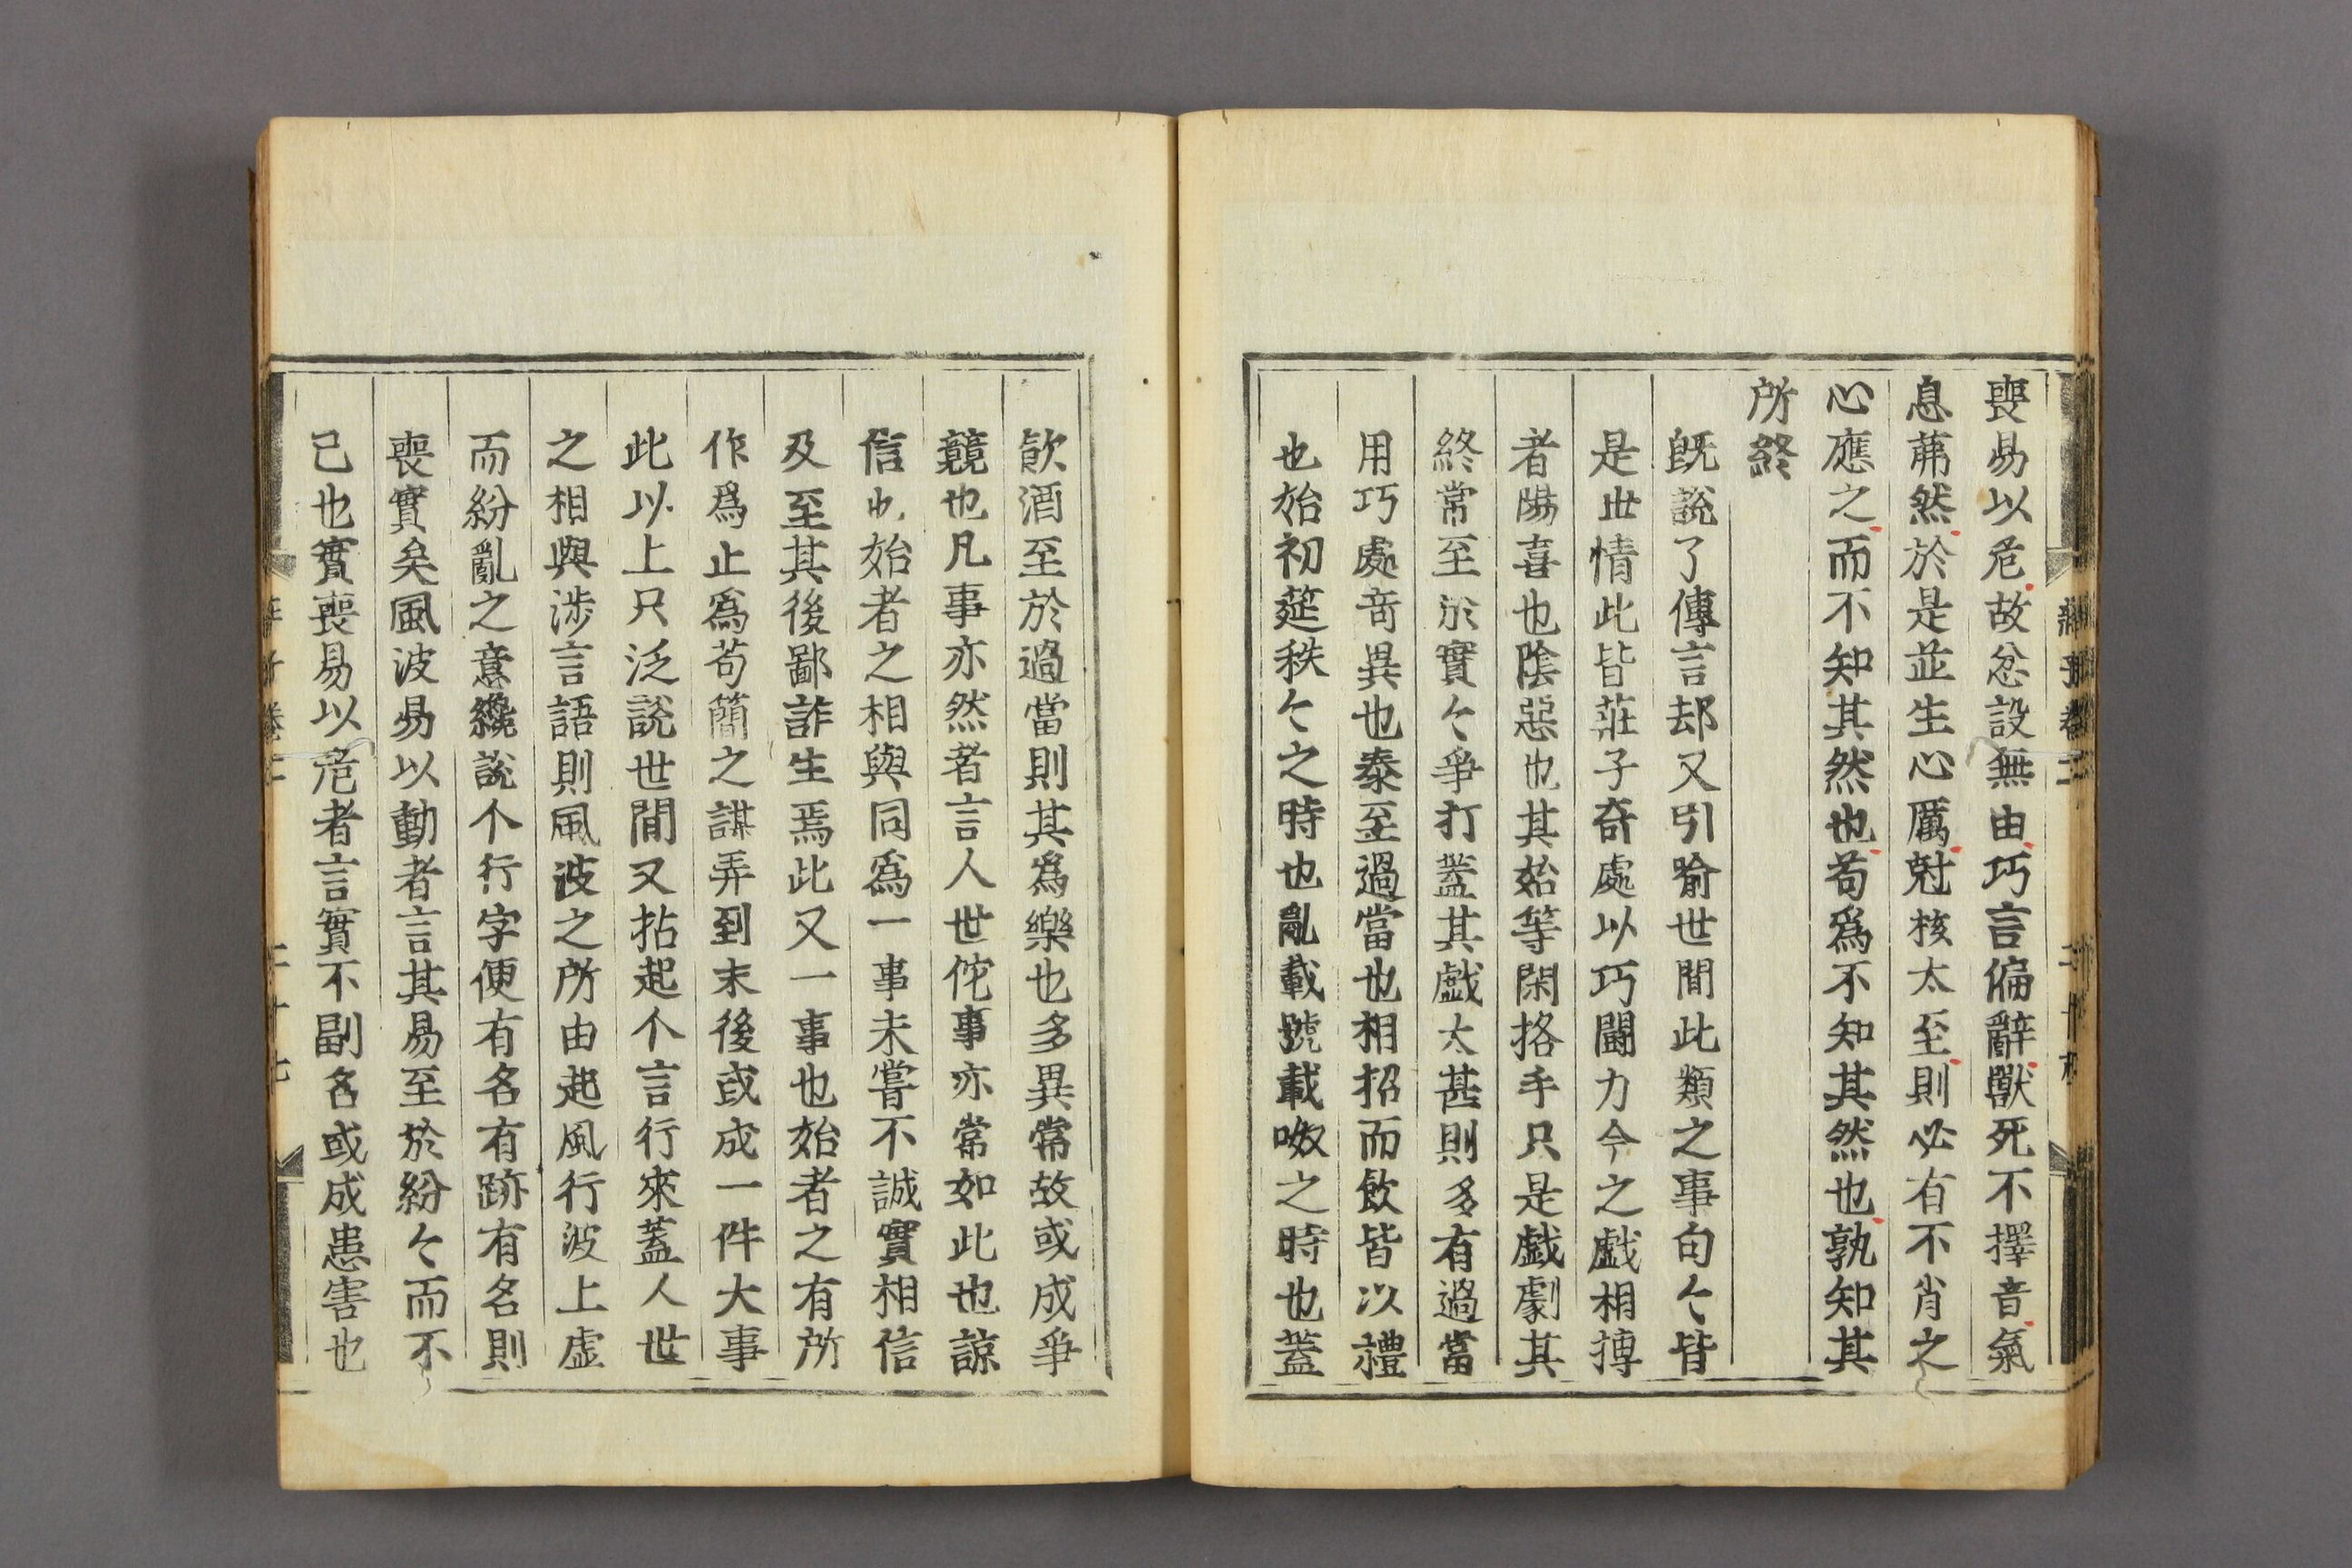 喪易以危故忿設無由巧言偏辭獸死不擇音氣
息茀然於是並生心厲尅核太至則必有不肖之
心應之而不知其然也苟爲不知其然也孰知其
所終
旣說了傳言却又引喻世間此類之事句々皆
是世情此皆莊子奇處以巧鬪力今之戱相摶
者陽喜也陰惡也其始等閑挌手只是戱劇其
終常至於實々爭打蓋其戱太甚則多有過當
用巧處竒異也泰至過當也相招而飮皆以禮
也始初筵秩々之時也亂載號載呶之時也蓋
飮酒至於過當則其爲樂也多異常故或成爭
競也凡事亦然者言人世佗事亦常如此也諒
信也始者之相與同爲一事未嘗不誠實相信
及至其後鄙詐生焉此又一事也始者之有所
作爲止爲苟簡之謀弄到末後或成一件大事
此以上只泛說世間又拈起个言行來蓋人世
之相與涉言語則風波之所由起風行波上虛
而紛亂之意纔說个行字便有名有跡有名則
喪實矣風波易以動者言其易至於紛々而不
己也實喪易以危者言實不副名或成患害也